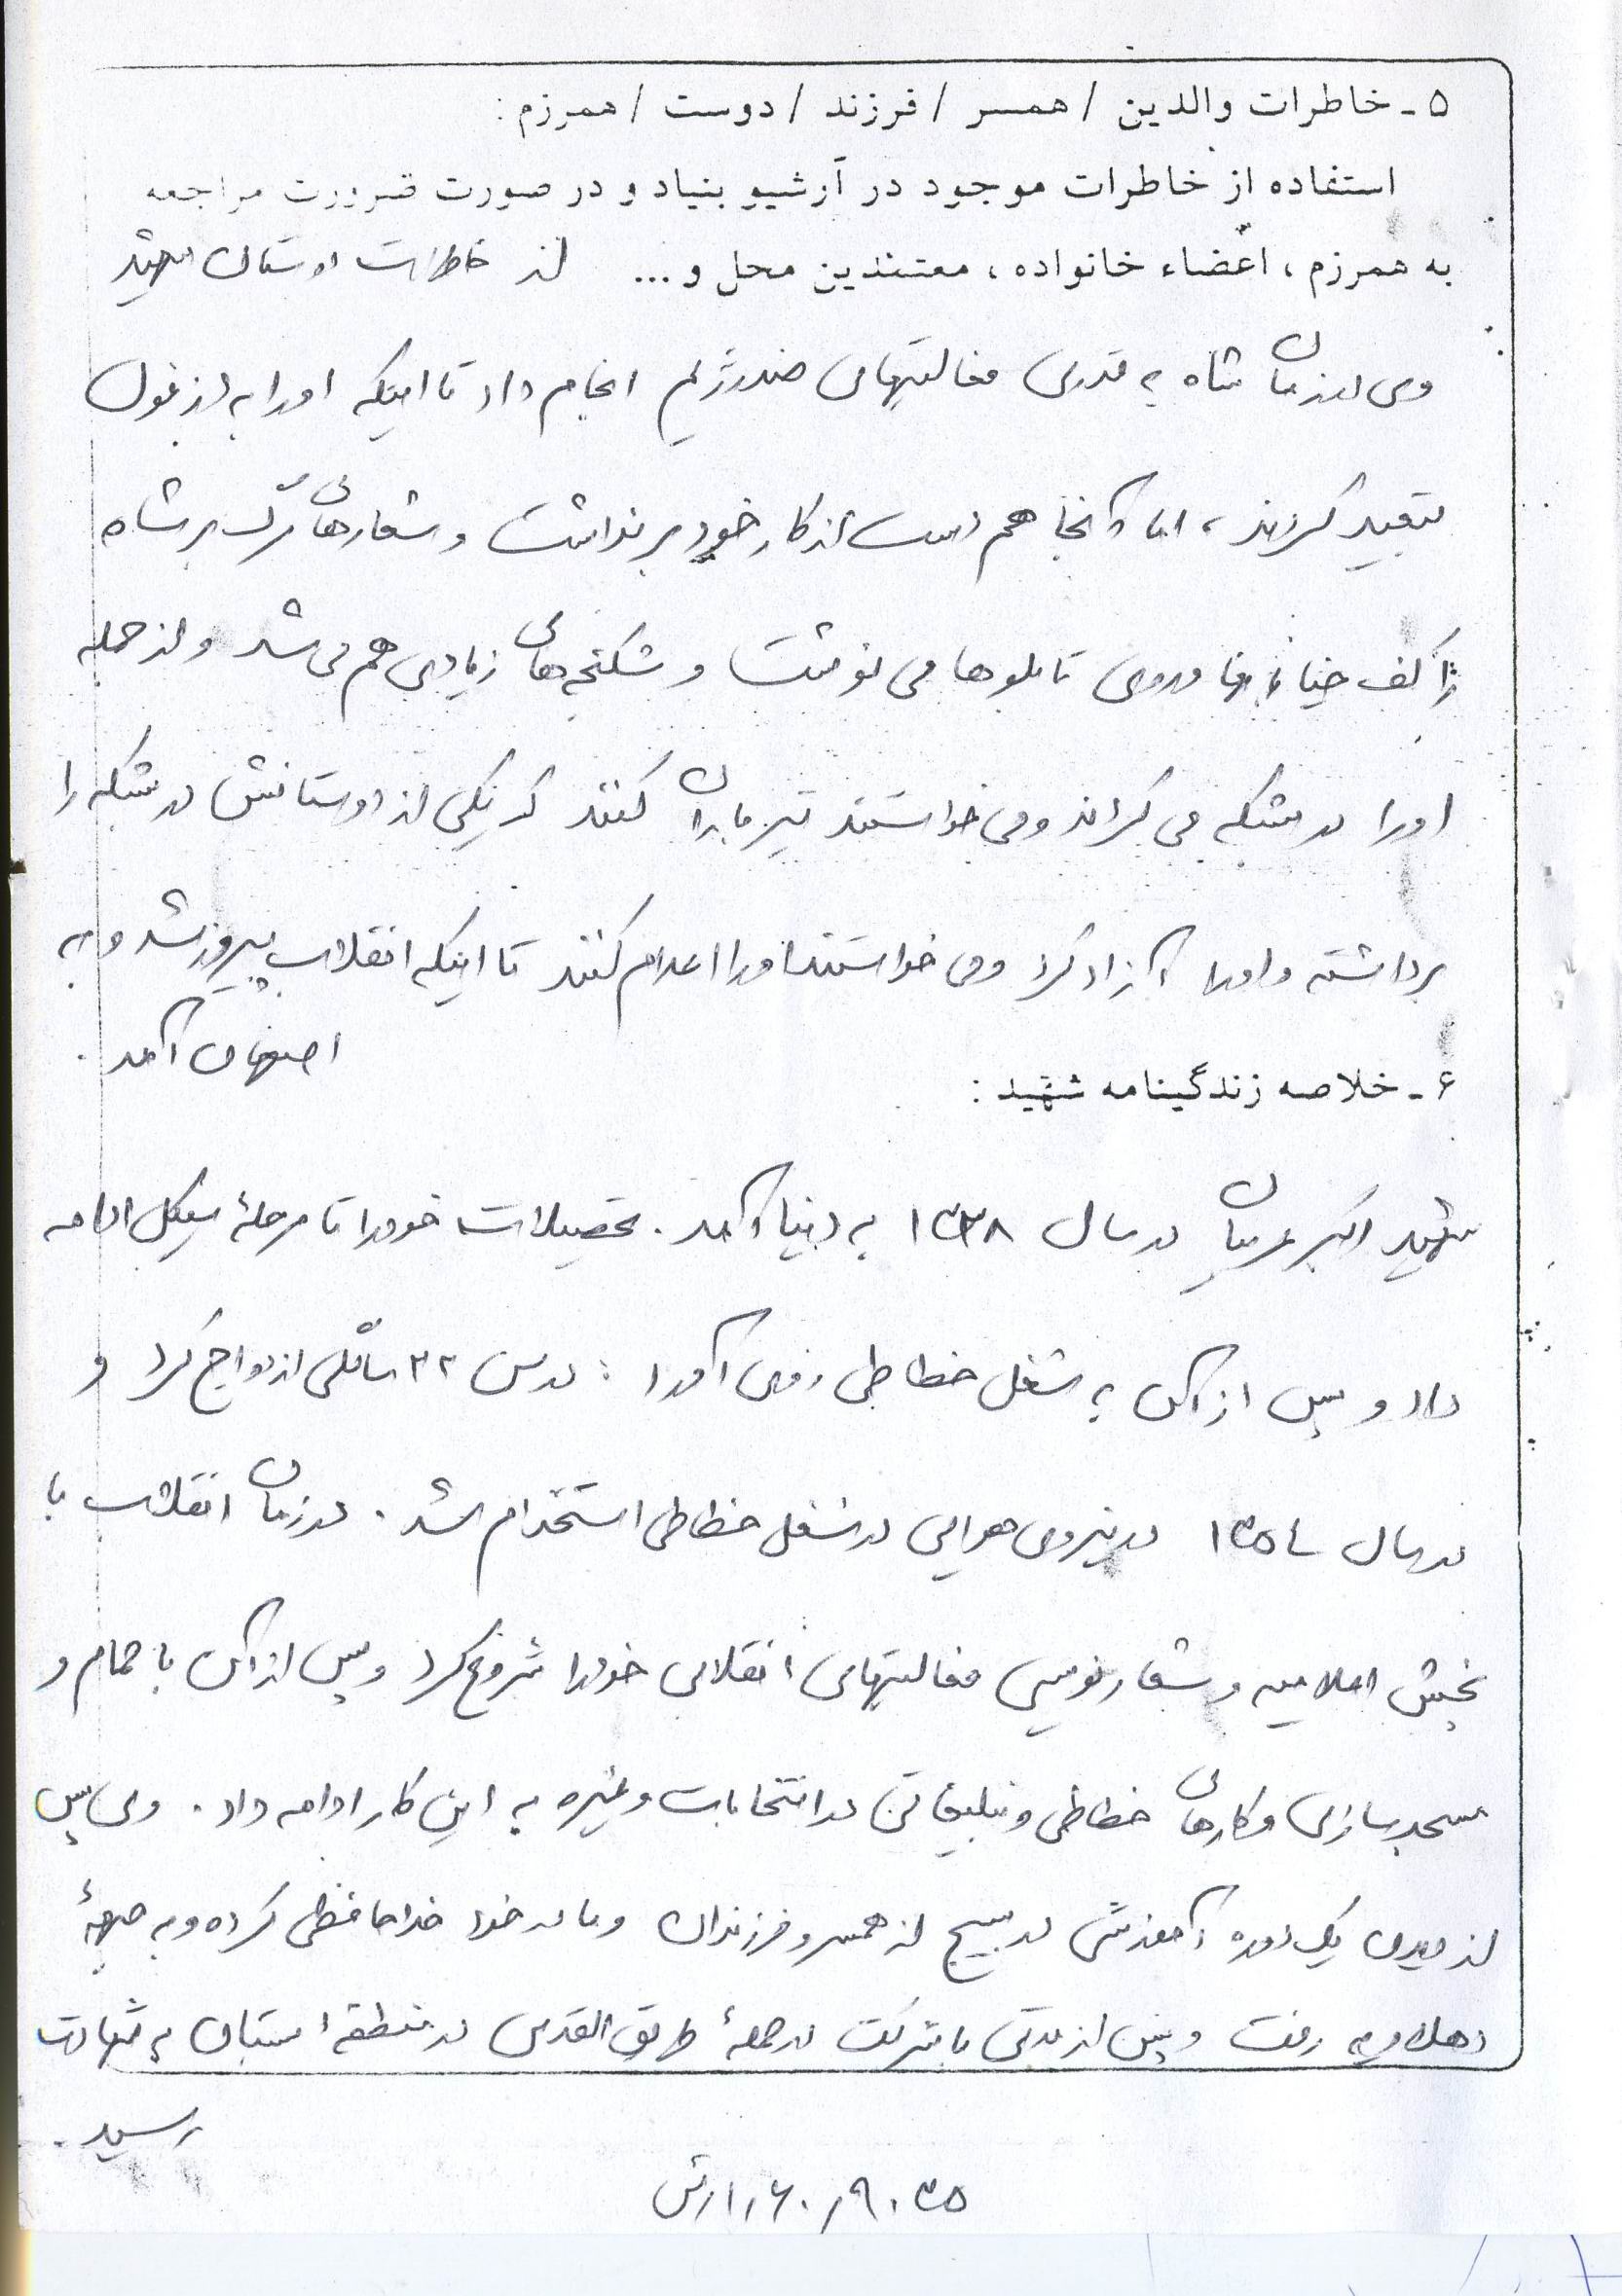 ۵ـ خاطرات والدین / همسر / فرزند / دوست / همرزم :
استفاده از خاطرات موجود در آرشیو بنیاد و در صورت ضرورت مراجعه
به همرزم ، اعضاء خانواده ، معتمدین محل و ... از خاطرات دوستان شهید
وی در زمان شاه به قدری فعالیتهای ضد رژیم انجام داد تا اینکه او را به دزفول
تبعید کردند ، اما آنجا هم دست از کار خود برنداشت و شعارهای مرگ بر شاه
را کف خیابانها و روی تابلوها می نوشت و شکنجه های زیادی هم می شد و از جمله
او را در بشکه می کردند و می خواستند تیرباران کنند که یکی از دوستانش در بشکه را
برداشته و او را آزاد کرد و می خواستند او را اعدام کنند تا اینکه انقلاب پیروز شد و به
اصفهان آمد .
۶ـ خلاصه زندگینامه شهید :
شهید اکبر عریان در سال ۱۳۲۸ به دنیا آمد . تحصیلات خود را تا مرحلهٔ سیکل ادامه
داد و پس از آن به شغل خطاطی روی آورد ؛ در سن ۲۲ سالگی ازدواج کرد و
در سال در نیروی هوایی در شغل خطاطی استخدام شد . در زمان انقلاب با
پخش اعلامیه و شعار نویسی فعالیتهای انقلابی خود را شروع کرد و پس از آن با حمام و
مسجد سازی و کارهای خطاطی و تبلیغاتی در انتخابات و غیره به این کار ادامه داد . وی پس
از دیدن یک دوره آموزشی در بسیج از همسر و فرزندان و مادر خود خداحافظی کرده و به جبههٔ
دهلاویه رفت و پس از مدتی با شرکت در حملهٔ طریق القدس در منطقه بستان به شهادت
رسید .